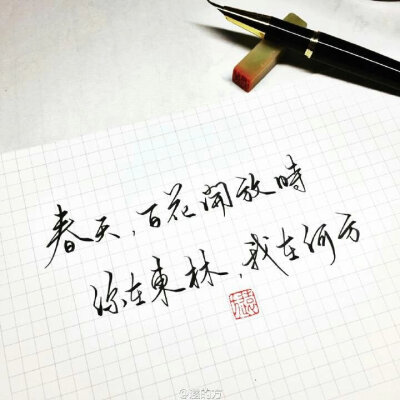 春天，百花開放時
你在東林，我在何方